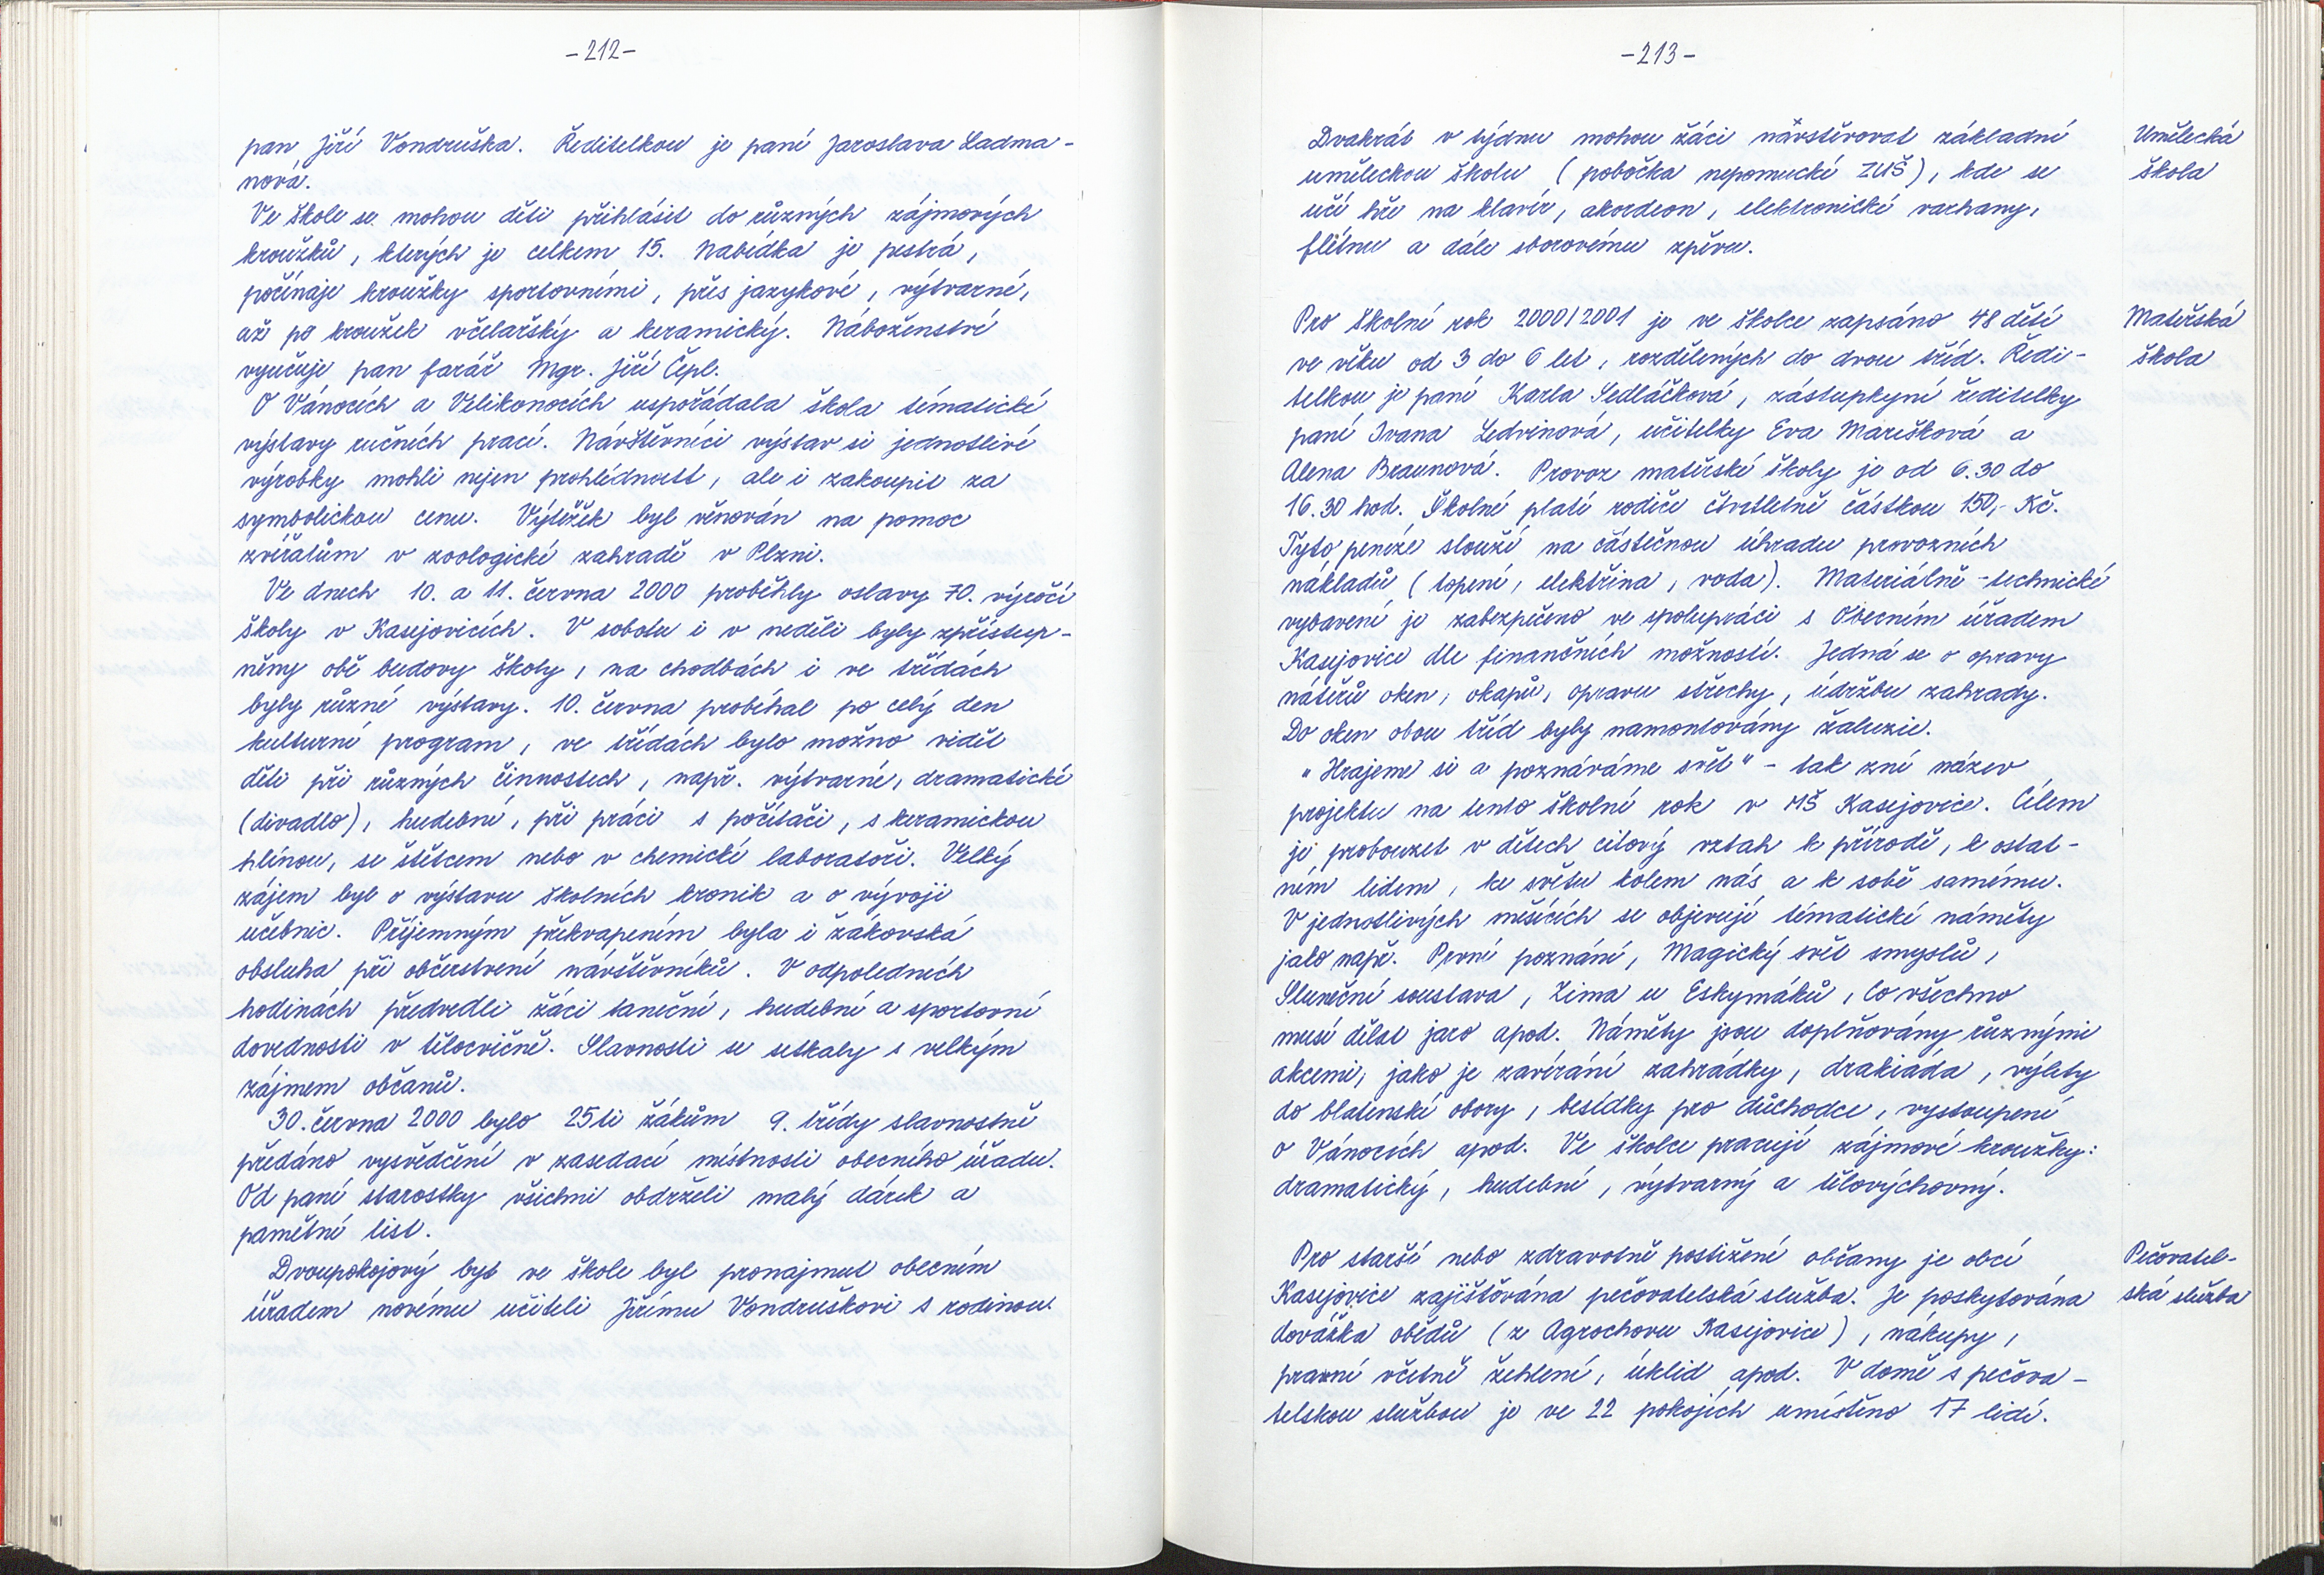 -212-
pan Jiří Vondruška. Ředitelkou je paní Jaroslava Ladma-
nová.
Ve škole se mohou děti přihlásit do různých zájmových
kroužků, kterých je celkem 15. Nabídka je pestrá,
počínaje kroužky sportovními, přes jazykové, výtvarné,
až po kroužek včelařský a keramický. Náboženství
vyučuje pan farář Mgr. Jiří Čepl.
O Vánocích a Velikonocích uspořádala škola tématické
výstavy ručních prací. Návštěvníci výstav si jednotlivé
výrobky mohli nejen prohlédnout, ale i zakoupit za
symbolickou cenu. Výtěžek byl věnován na pomoc
zvířatům v zoologické zahradě v Plzni.
Ve dnech 10. a 11. června 2000 proběhly oslavy 70. výročí
školy v Kasejovicích. V sobotu i v neděli byly zpřístup-
něny obě budovy školy, na chodbách i ve třídách
byly různé výstavy. 10. června probíhal po celý den
kulturní program, ve třídách bylo možno vidět
děti při různých činnostech, např. výtvarné, dramatické
(divadlo), hudební, při práci s počítači, s keramickou
hlínou, se štětcem nebo v chemické laboratoři. Velký
zájem byl o výstavu školních kronik a o vývoji
učebnic. Příjemným překvapením byla i žákovská
obsluha při občerstvení návštěvníků. V odpoledních
hodinách předvedli žáci taneční, hudební a sportovní
dovednosti v tělocvičně. Slavnosti se setkaly s velkým
zájmem občanů.
30. června 2000 bylo 25ti žákům 9. třídy slavnostně
předáno vysvědčení v zasedací místnosti obecního úřadu.
Od paní starostky všichni obdrželi malý dárek a
pamětní list.
Dvoupokojový byt ve škole byl pronajmut obecním
úřadem novému učiteli Jiřímu Vondruškovi s rodinou.
-213-
Dvakrát v týdnu mohou žáci navštěvovat základní
uměleckou školu (pobočka nepomucké ZUŠ), kde se
učí hře na klavír, akordeon, elektronické varhany,
flétnu a dále sborovému zpěvu.
Umělecká
škola
Pro školní rok 2000/2001 je ve školce zapsáno 48 dětí
ve věku od 3 do 6 let, rozdělených do dvou tříd. Ředi-
telkou je paní Karla Sedláčková, zástupkyní ředitelky
paní Ivana Ledvinová, učitelky Eva Marešková a
Alena Braunová. Provoz mateřské školy je od 6.30 do
16.30 hod. Školné platí rodiče čtvrtletně částkou 150,- Kč.
Tyto peníze slouží na částečnou úhradu provozních
nákladů (topení, elektřina, voda). Materiálně-technické
vybavení je zabezpečeno ve spolupráci s Obecním úřadem
Kasejovice dle finančních možností. Jedná se o opravy
nátěrů oken, okapů, opravu střechy, údržbu zahrady.
Do oken obou tříd byly namontovány žaluzie.
"Hrajeme si a poznáváme svět" - tak zní název
projektu na tento školní rok v MŠ Kasejovice. Cílem
je probouzet v dětech citový vztah k přírodě, k ostat-
ním lidem, ke světu kolem nás a k sobě samému.
V jednotlivých měsících se objevují tématické náměty
jako např. První poznání, Magický svět smyslů,
Sluneční soustava, Zima u Eskymáků, Co všechno
musí dělat jaro apod. Náměty jsou doplňovány různými
akcemi, jako je zavírání zahrádky, drakiáda, výlety
do blatenské obory, besídky pro důchodce, vystoupení
o Vánocích apod. Ve školce pracují zájmové kroužky:
dramatický, hudební, výtvarný a tělovýchovný.
Mateřská
škola
Pro starší nebo zdravotně postižené občany je obcí
Kasejovice zajišťována pečovatelská služba. Je poskytována
dovážka obědů (z Agrochovu Kasejovice), nákupy,
praní včetně žehlení, úklid apod. V domě s pečova-
telskou službou je ve 22 pokojích umístěno 17 lidí.
Pečovatel-
ská služba